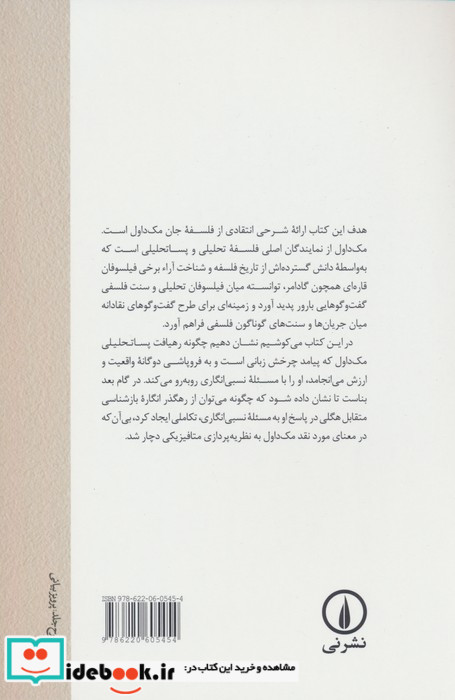 هدف این کتاب ارائهٔ شرحی انتقادی از فلسفهٔ جان مک‌داول است.
مک‌داول از نمایندگان اصلی فلسفهٔ تحلیلی و پساتحلیلی است که
به‌واسطهٔ دانش گسترده‌اش از تاریخ فلسفه و شناخت آراء برخی فیلسوفان
قاره‌ای همچون گادامر، توانسته میان فیلسوفان تحلیلی و سنت فلسفی
گفت‌وگوهایی بارور پدید آورد و زمینه‌ای برای طرح گفت‌وگوهای نقادانه
میان جریان‌ها و سنت‌های گوناگون فلسفی فراهم آورد.
در این کتاب می‌کوشیم نشان دهیم چگونه رهیافت پساتحلیلی
مک‌داول که پیامد چرخش زبانی است و به فروپاشی دوگانهٔ واقعیت و
ارزش می‌انجامد، او را با مسئلهٔ نسبی‌انگاری روبه‌رو می‌کند. در گام بعد
بناست تا نشان داده شود که چگونه می‌توان از رهگذر انگارهٔ بازشناسی
متقابل هگلی در پاسخ او به مسئلهٔ نسبی‌انگاری، تکاملی ایجاد کرد، بی‌آن‌که
در معنای مورد نقد مک‌داول به نظریه‌پردازی متافیزیکی دچار شد.
ح جلد: پرویز بیانی
ISBN 978-622-06-0545-4
9 786220 605454
نشرنی
idebook.ir
مشاهده و خرید این کتاب در: